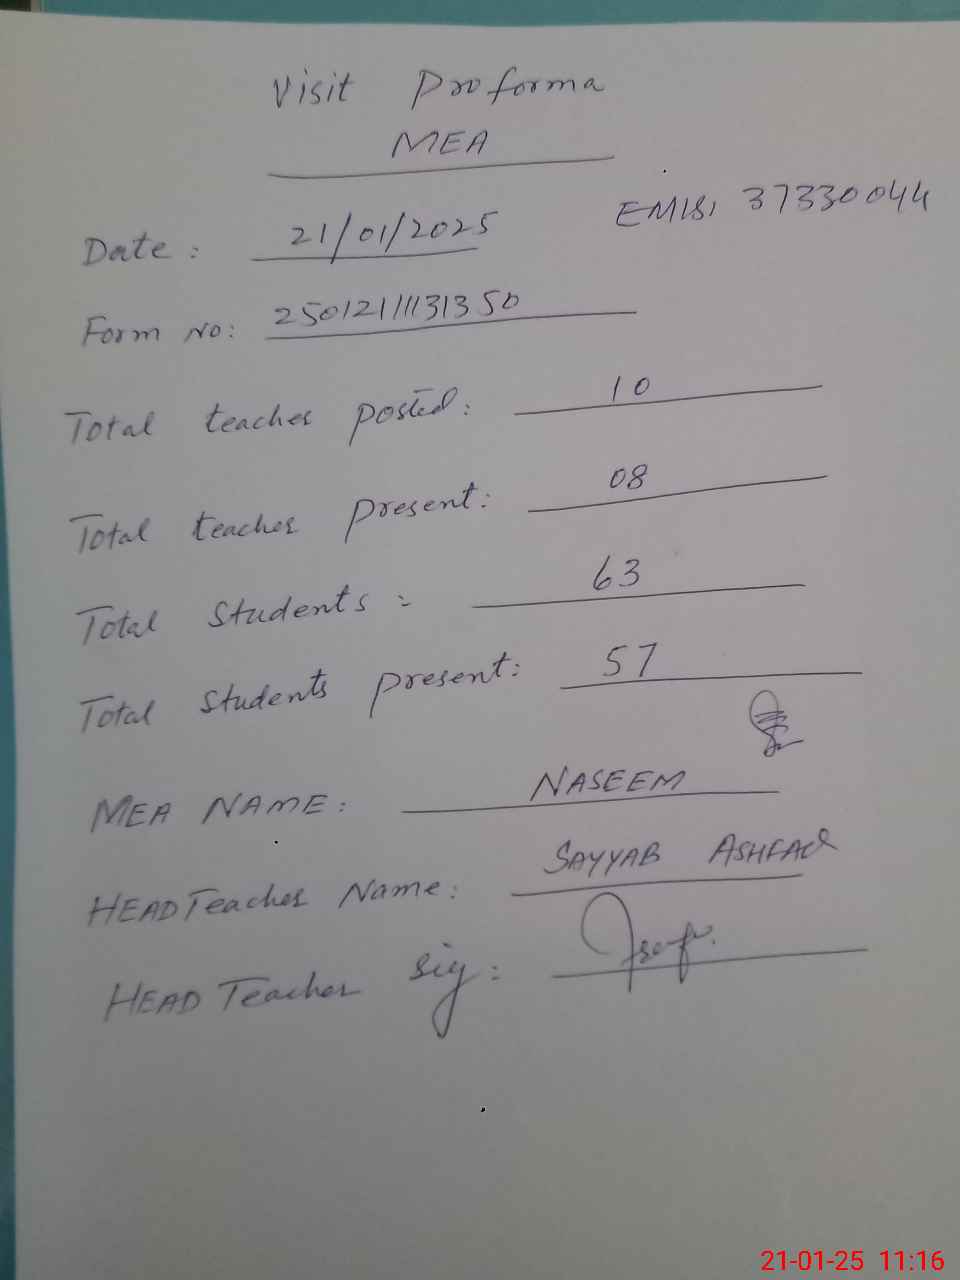 Visit Proforma
MEA
EMIS, 37330044
Date : 21/01/2025
Form No: 25012111131350
Total teacher posted: 10
Total teacher present: 08
Total Students = 63
Total Students present: 57
MEA NAME: NASEEM
HEAD Teacher Name: SAYYAB ASHFAQ
HEAD Teacher sig:
21-01-25 11:16